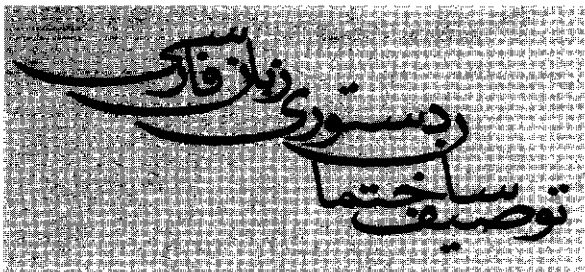 توصیف ساختمان
دستوری
زبان فارسی